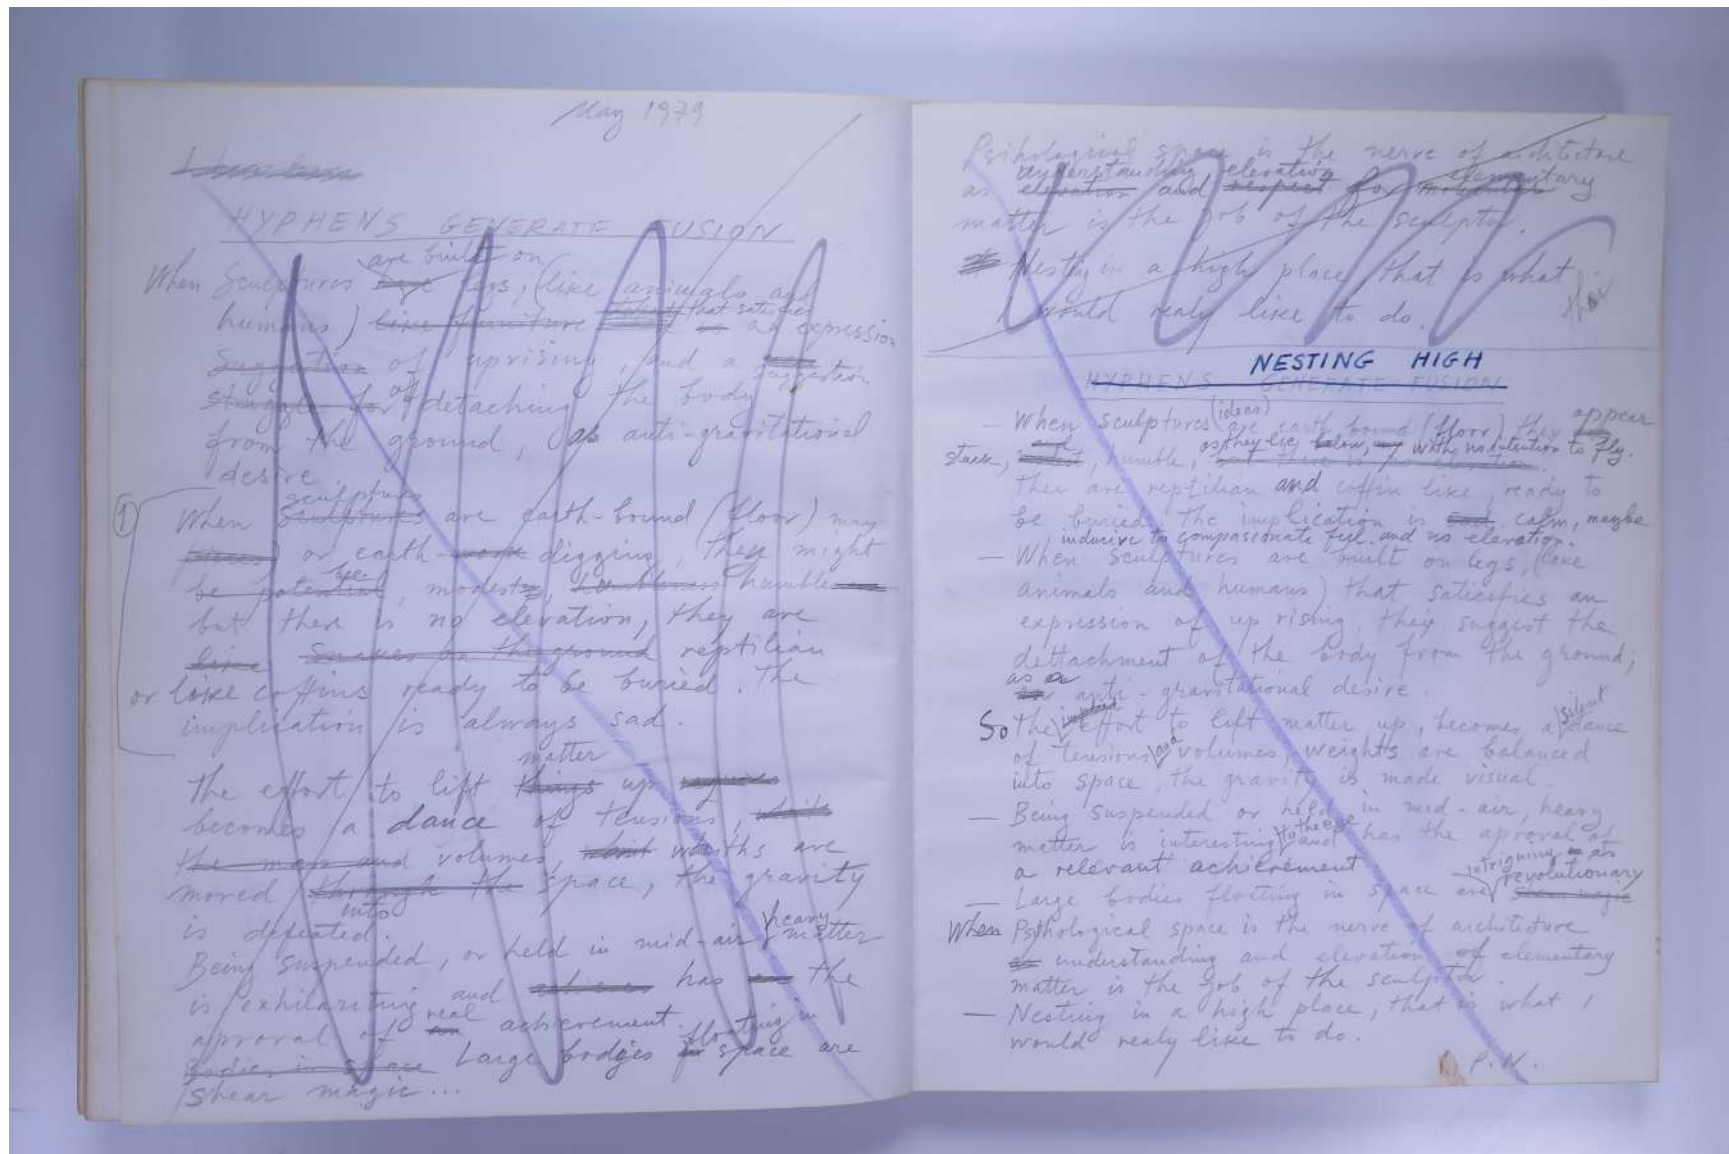 May 1979
HYPHENS GENERATE FUSION
are built on
When Sculptures have legs, (like animals and
humans) like furniture that satisfies an expression
Suggestion of uprising, and a suggestion
struggle for of detaching the body
from the ground, as anti-gravitational
desire
sculptures
① When Sculptures are earth-bound (floor) may
or earth- digging, they might
be potential, modest, humble
but there is no elevation, they are
like Snakes on the ground reptilian
or like coffins ready to be buried. The
implication is always sad.
matter
The effort to lift things up
becomes a dance of tensions, while
the mass and volumes, weiths are
moved through the space, the gravity
into
is defeated.
Being suspended, or held in mid-air heavy matter
is exhilariting and has the
aproval of real achievement.
Bodies in space Large bodies floating in space are
shear magic...
Psihological space is the nerve of architecture
understanding elevation elementary
as elevation and respect for
matter is the job of the sculptor.
Nesting in a high place, that is what
I would realy like to do.
NESTING HIGH
HYPHENS GENERATE FUSION
— When sculptures (ideas) are earth bound (floor) they appear
stuck, humble, as they lie below, with no intention to fly.
they are reptilian and coffin like, ready to
be buried. The implication is sad. calm, maybe
inducive to compassionate feel. and no elevation.
— When sculptures are built on legs, (like
animals and humans) that saticifies an
expression of up rising, they suggest the
dettachment of the body from the ground;
as a
anti-gravitational desire.
So The implied effort to lift matter up, becomes a silent dance
of tensions and volumes, weights are balanced
into space, the gravity is made visual.
— Being suspended or held in mid-air, heavy
matter is interesting to the eye and has the aproval of
a relevant achievement
intriguing as
— Large bodies floating in space are revolutionary shear magic
When Psihological space is the nerve of architecture
as understanding and elevation of elementary
matter is the job of the sculptor.
— Nesting in a high place, that is what I
would realy like to do.
P.N.